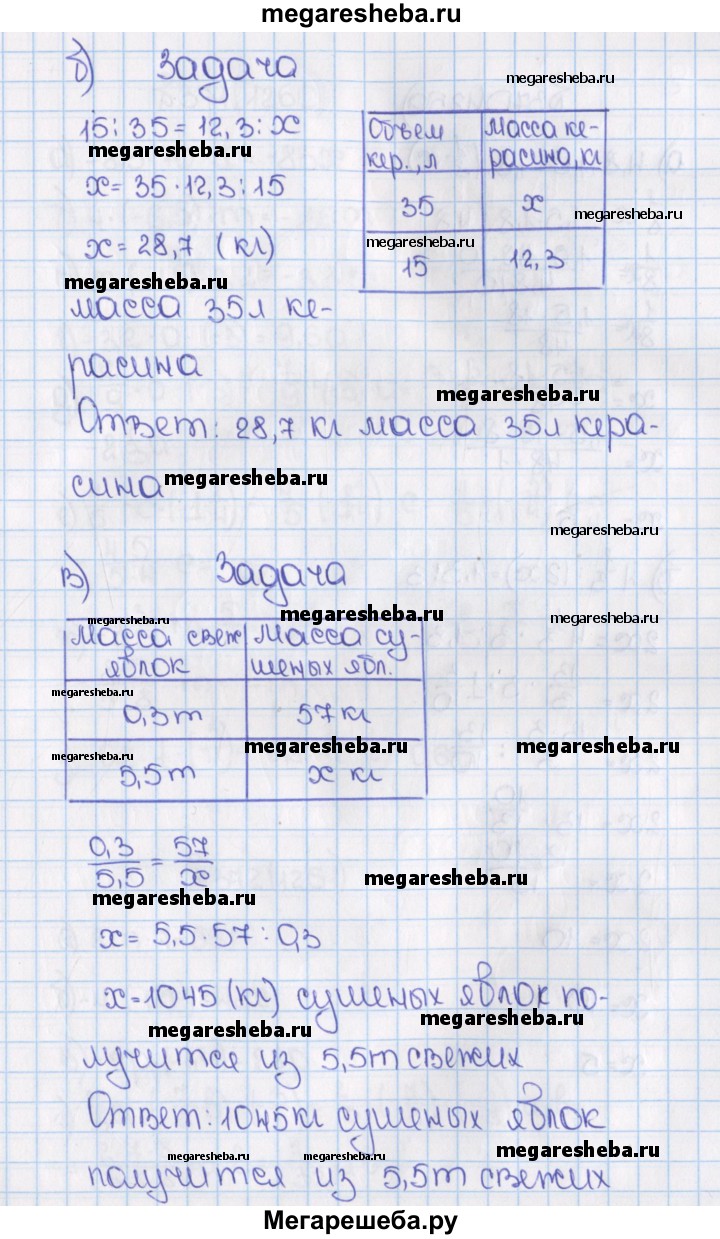 megaresheba.ru
б) Задача
megaresheba.ru
15 : 35 = 12,3 : x
megaresheba.ru
x = 35 · 12,3 : 15
x = 28,7 (кг)
megaresheba.ru
масса 35л ке-
расина
Объем кер., л | Масса ке-расино, кг
35 | x
megaresheba.ru
megaresheba.ru
15 | 12,3
megaresheba.ru
Ответ: 28,7 кг масса 35л кера-
сина
megaresheba.ru
megaresheba.ru
в) Задача
megaresheba.ru
megaresheba.ru
megaresheba.ru
Масса свеж яблок | Масса су-шеных ябл.
megaresheba.ru
0,3т | 57 кг
megaresheba.ru
megaresheba.ru
megaresheba.ru
5,5т | x кг
0,3/5,5 = 57/x
megaresheba.ru
megaresheba.ru
x = 5,5 · 57 : 0,3
x = 1045 (кг) сушеных яблок по-
megaresheba.ru
megaresheba.ru
лучится из 5,5т свежих
Ответ: 1045кг сушеных яблок
megaresheba.ru
megaresheba.ru
megaresheba.ru
получится из 5,5т свежих
Мегарешеба.ру